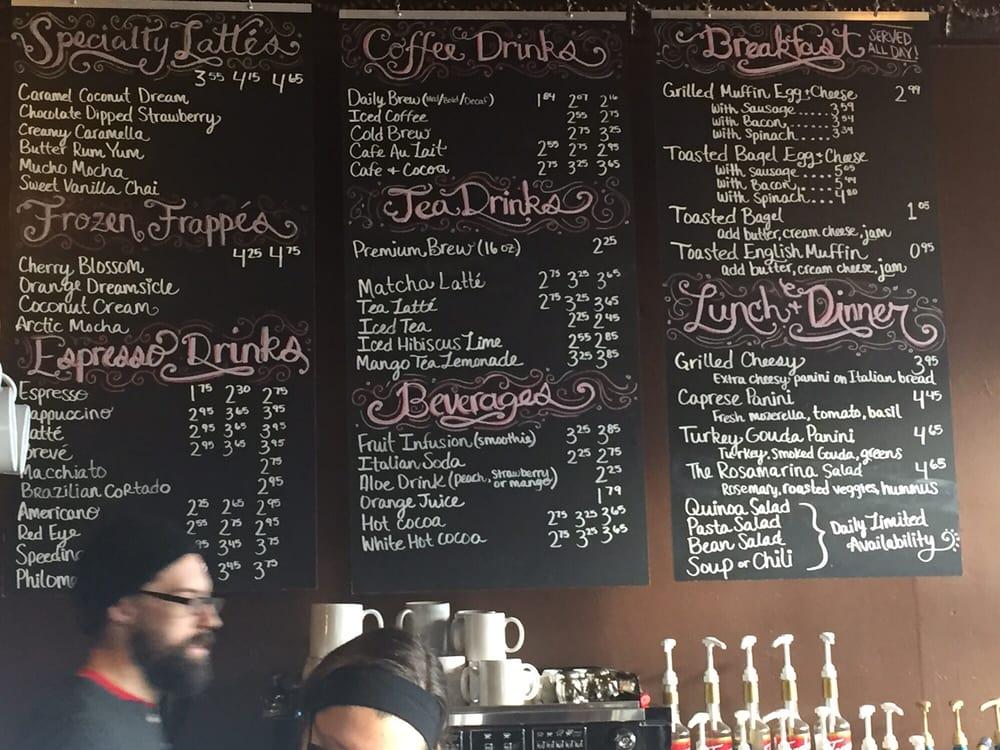 Specialty Lattés
3.55 4.15 4.65
Caramel Coconut Dream
Chocolate Dipped Strawberry
Creamy Caramella
Butter Rum Yum
Mucho Mocha
Sweet Vanilla Chai
Frozen Frappés
4.25 4.75
Cherry Blossom
Orange Dreamsicle
Coconut Cream
Arctic Mocha
Espresso Drinks
Espresso 1.75 2.30 2.75
appuccino 2.95 3.65 3.95
atté 2.95 3.65 3.95
brevé 2.95 3.65 3.95
Macchiato 2.75
Brazilian Cortado 2.95
Americano 2.25 2.65 2.95
Red Eye 2.55 2.75 2.95
Speedin 95 3.45 3.75
Philom 3.45 3.75
Coffee Drinks
Daily Brew (Mild/Bold/Decaf) 1.84 2.07 2.16
Iced Coffee 2.55 2.75
Cold Brew 2.75 3.25
Cafe Au Lait 2.55 2.75 2.95
Cafe + Cocoa 2.75 3.25 3.65
Tea Drinks
Premium Brew (16 oz) 2.25
Matcha Latté 2.75 3.25 3.65
Tea Latté 2.75 3.25 3.65
Iced Tea 2.25 2.45
Iced Hibiscus Lime 2.55 2.85
Mango Tea Lemonade 3.25 3.85
Beverages
Fruit Infusion (smoothie) 3.25 3.85
Italian Soda 2.25 2.75
Aloe Drink (peach, strawberry or mango) 2.25
Orange Juice 1.79
Hot Cocoa 2.75 3.25 3.65
White Hot Cocoa 2.75 3.25 3.65
Breakfast SERVED ALL DAY!
Grilled Muffin Egg + Cheese 2.99
with Sausage.....3.59
with Bacon.....3.54
with Spinach.....3.34
Toasted Bagel Egg + Cheese
with Sausage.....5.05
with Bacon.....5.44
with Spinach...4.80
Toasted Bagel 1.05
add butter, cream cheese, jam
Toasted English Muffin 0.95
add butter, cream cheese, jam
Lunch + Dinner
Grilled Cheesy 3.95
Extra cheesy panini on Italian bread
Caprese Panini 4.45
Fresh mozerella, tomato, basil
Turkey Gouda Panini 4.65
Turkey, Smoked Gouda, greens
The Rosamarina Salad 4.65
Rosemary, roasted veggies, hummus
Quinoa Salad
Pasta Salad
Bean Salad
Soup or Chili
Daily Limited
Availability